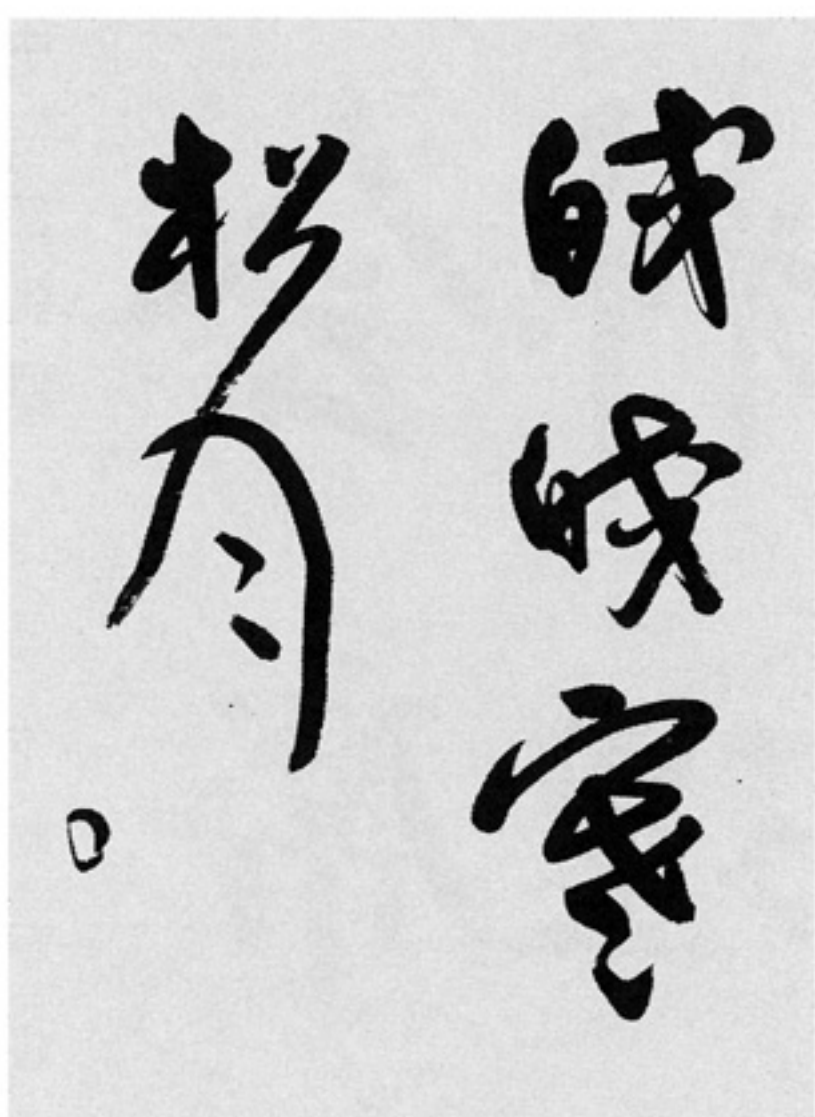 皎皎寒
松月。